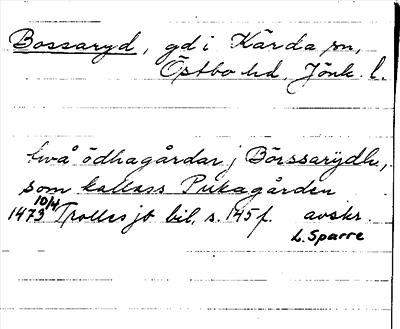 Bossaryd, gd i Kärda sn,
Östbo hd, Jönk. l.
två ödhagårdar j Börssarydh,
som kallass Pukagården
10/4
1473 Trolles jb bil, s. 145 f. avskr.
L. Sparre